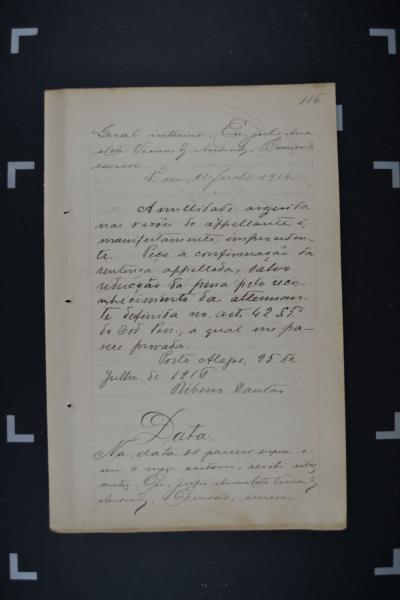 116
Geral interino. Eu,
escrevi
A nullidade arguida
nas razões do appellante é,
manifestamente, improceden-
te. Peço a confirmação da
sentença appellada, salvo
reducção da pena pelo reco-
nhecimento da attenuan-
te definida no art. 42 §
do Cod. Pen., a qual me pa-
rece provada.
Porto Alegre, 25 de
Julho de 1916
Ribeiro Dantas
Data.
Na data do parecer supra e
em o meu cartorio, recebi estes
autos. Eu,
Andrade, Escrivão, escrevi.